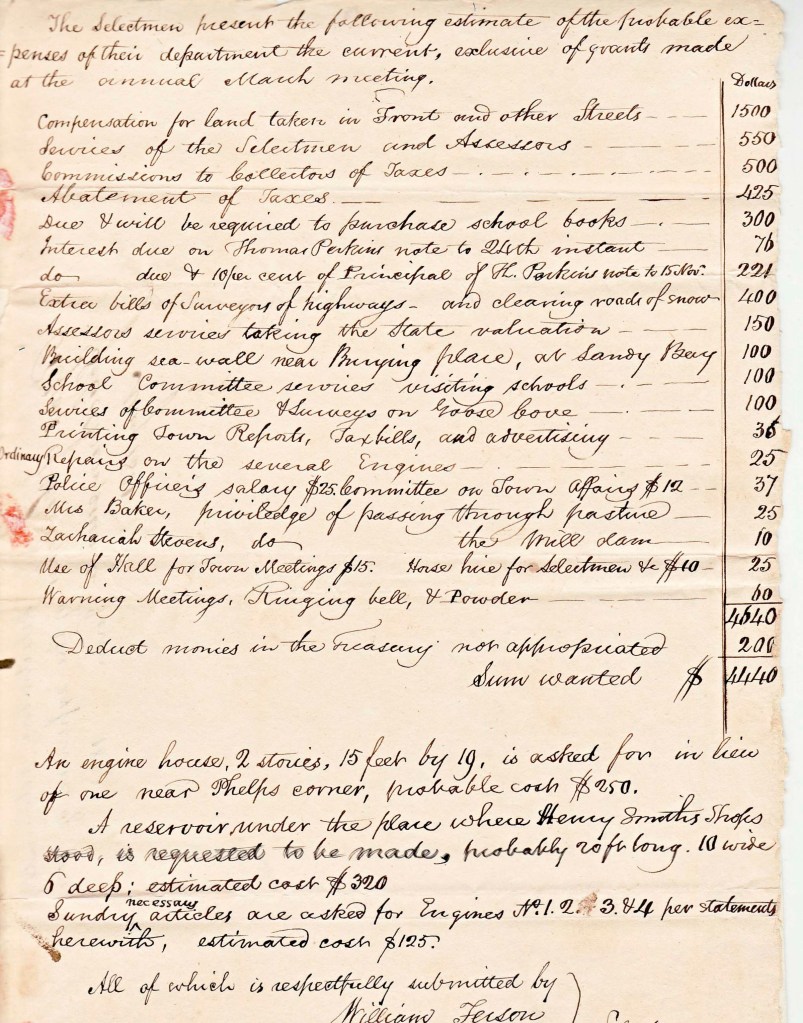 The Selectmen present the following estimate of the probable ex=
=penses of their department the current, exclusive of grants made
at the annual March meeting.
Dollars
Compensation for land taken in Front and other Streets - - - 1500
Services of the Selectmen and Assessors - - - - 550
Commissions to Collectors of Taxes - - - - - 500
Abatement of Taxes - - - - - - 425
Due & will be required to purchase school books - - - 300
Interest due on Thomas Perkins note to 24th instant - - 76
do due & 10 per cent of Principal of H. Perkins note to 15 Nov. 221
Extra bills of Surveyors of highways - and clearing roads of snow 400
Assessors services taking the State valuation - - - 150
Building sea-wall near Burying place, at Sandy Bay 100
School Committee services visiting schools - - - 100
Services of Committee & Surveys on Goose Cove - - - 100
Printing Town Reports, Taxbills, and advertising - - - 36
Ordinary Repairs on the several Engines - - - - 25
Police Officer's salary $25. Committee on Town affairs $12 - 37
Mrs Baker, priviledge of passing through pasture 25
Zachariah Stevens, do the Mill dam - 10
Use of Hall for Town Meetings $15. Horse hire for Selectmen &c $10 - 25
Warning Meetings, Ringing bell, & Powder - - - 60
4640
Deduct monies in the Treasury not appropriated 200
Sum wanted $ 4440
An engine house, 2 stories, 15 feet by 19, is asked for in lieu
of one near Phelps corner, probable cost $250.
A reservoir, under the place where Henry Smiths Shops
stood, is requested to be made, probably 20 ft long. 10 wide
6 deep; estimated cost $320
Sundry necessary articles are asked for Engines No. 1. 2. 3. & 4 per statements
herewith, estimated cost $125.
All of which is respectfully submitted by
William Ferson